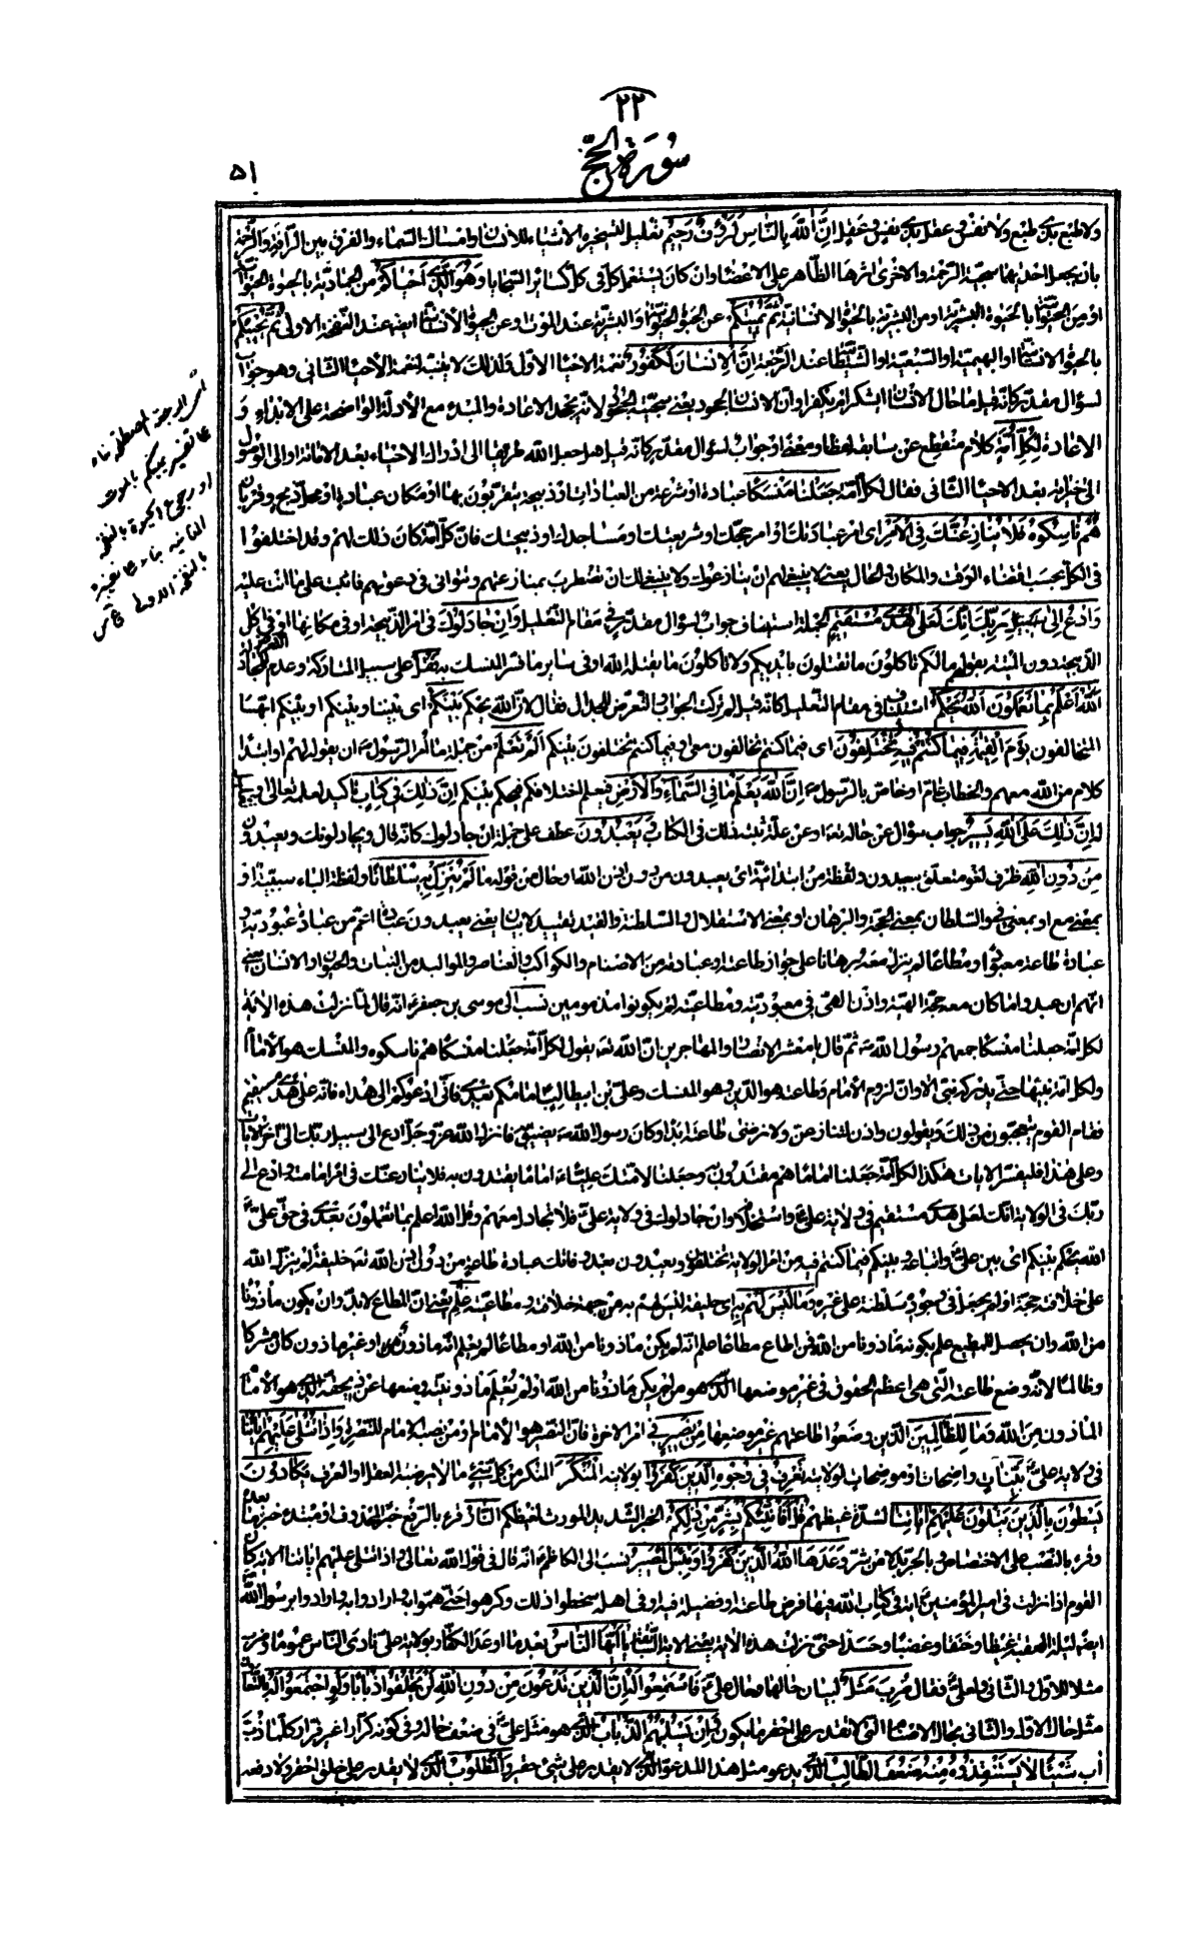 ٢٢
سُورَةُ الحَجّ
٥١
ولا طبع بلا طبع ولا نفس وعقل بلا نفس وعقل اِنَّ اللّٰهَ بِالنّٰاسِ لَرَؤُفٌ رَحِيمٌ تعليل لتسخيره الاشياء للانسان وامساك السماء والفرق بين الرأفة والرحمة
بان يجعل احديهما سجيّة الرّحمة والاخرى اثرها الظّاهر على الاعضاء وان كان يستعمل كلّ فى كلّ كسائر السّجايا وَهُوَ الَّذِى اَحْيٰاكُمْ من الجماديّة بالحيوة الحيوانيّة
او من الحيوانيّة بالحيوة البشريّة او من البشريّة بالحيوة الانسانيّة ثُمَّ يُمِيتُكُمْ عن الحيوة الحيوانيّة والبشريّة عند الموت وعن الحيوة الانسانيّة ايضاً عند النّفخة الاولى ثُمَّ يُحْيِيكُمْ
بالحيوة الانسانيّة او البهيميّة او السّبعيّة او الشّيطانيّة عند الرّجعة اِنَّ الْاِنْسٰانَ لَكَفُورٌ نعمة الاحياء الاوّل ولذلك لا يتنبّه لنعمة الاحياء الثّانى وهو جواب
لسؤال مقدّر كانّه قيل ما حال الانسان ايشكر ام يكفر او انّ الانسان لجحود يعنى سجيّته الجحود لانّه يجحد الاعادة والمبدء مع الادلّة الواضحة على الابداء و
الاعادة لِكُلِّ اُمَّةٍ كلام منقطع عن سابقه لفظاً ومعنىً او جواب لسؤال مقدّر كانّه قيل هل جعل اللّه طريقاً الى ادراك الاحياء بعد الاماتة او الى الوصول
الى خيراته بعد الاحياء الثّانى فقال لكلّ امّة جَعَلْنٰا مَنْسَكاً عبادة او شرعة من العبادات او ذبيحة يتقرّبون بها او مكان عبادة او محلّ ذبح وقربان
هُمْ نٰاسِكُوهُ فَلٰا يُنٰازِعُنَّكَ فِى الْاَمْرِ اى امر عبادتك او امر حجّك او شريعتك او مساجدك او ذبيحتك فانّ كلّ امّة كان ذلك لهم وقد اختلفوا
فى الكلّ بحسب اقتضاء الوقت والمكان والحال يعنى لا ينبغى لهم ان ينازعوك ولا ينبغى لك ان تضطرب بمنازعتهم وتتوانى فى دعوتهم فاثبت على ما انت عليه
وَادْعُ اِلٰى رَبِّكَ اِنَّكَ لَعَلٰى هُدًى مُسْتَقِيمٍ الجملة استيناف جواب لسؤال مقدّر فى مقام التّعليل وَاِنْ جٰادَلُوكَ فى امر الذّبيحة او فى مكانها او فى اكل
الذّبيحة دون الميتة بقولهم ما لكم تأكلون ما تقتلون بايديكم ولا تأكلون ما يقتله اللّه او فى سائر ما فسّر المنسك به فَقُلِ على سبيل المتاركة وعدم التّعرّض للجدال
اَللّٰهُ اَعْلَمُ بِمٰا تَعْمَلُونَ اَللّٰهُ يَحْكُمُ استيناف فى مقام التّعليل كانّه قيل لم تركت الجواب والتّعرّض للجدال فقال لانّ اللّه يحكم بَيْنَكُمْ اى بيننا وبينكم او بينكم ايّها
المتخالفون يَوْمَ الْقِيٰمَةِ فِيمٰا كُنْتُمْ فِيهِ تَخْتَلِفُونَ اى فيما كنتم تخالفون معى او فيما كنتم تختلفون بينكم اَلَمْ تَعْلَمْ من جملة ما امر الرّسول ص ان يقوله لهم او ابتداء
كلام من اللّه معهم والخطاب عامّ او خاصّ بالرّسول ص اَنَّ اللّٰهَ يَعْلَمُ مٰا فِى السَّمٰاءِ وَالْاَرْضِ فيعلم اختلافكم فيحكم بينكم اِنَّ ذٰلِكَ فِى كِتٰابٍ تأكيد لعلمه تعالى
اِنَّ ذٰلِكَ عَلَى اللّٰهِ يَسِيرٌ جواب سؤال عن حاله تعالى او عن علّة ثبت ذلك فى الكتاب وَيَعْبُدُونَ عطف على جملة ان جادلوك كانّه قال ويجادلونك ويعبدون
مِنْ دُونِ اللّٰهِ ظرف لغو متعلّق بيعبدون ولفظة من ابتدائيّة اى يعبدون من دون اذن اللّه او حال من قوله مٰا لَمْ يُنَزِّلْ بِهِ سُلْطٰاناً ولفظة الباء سببيّة او
بمعنى مع او بمعنى فى والسّلطان بمعنى الحجّة والبرهان او بمعنى الاستقلال والسّلطنة والقيد تقييد لا بيان يعنى يعبدون عبادة اعمّ من عبادة عبوديّة و
عبادة طاعة معبوداً او مطاعاً لم ينزل معه برهاناً على جواز طاعته او عبادته من الاصنام والكواكب والعناصر والمواليد من النّبات والحيوان والانسان يعنى
انّهم ان عبدوا ما كان معه حجّة الهيّة واذن الهىّ فى معبوديّته ومطاعيّته لم يكونوا مذمومين نسب الى موسى بن جعفر ع انّه قال لمّا نزلت هذه الآية
لكلّ امّة جعلنا منسكاً جمعهم رسول اللّه ص ثمّ قال يا معشر الانصار والمهاجرين انّ اللّه تعالى يقول لكلّ امّة جعلنا منسكاً هم ناسكوه والمنسك هو الامام
ولكلّ امّة نبيّها حتّى يدركه نبىّ الا وانّ لزوم الامام وطاعته هو الدّين وهو المنسك وعلىّ بن ابيطالب ع امامكم بعدى فانّى ادعوكم الى هداه فانّه على هدى مستقيم
فقام القوم يتعجّبون من ذلك ويقولون واذن لننازعنّ ولا نرضى طاعته ابداً وكان رسول اللّه ص يضيق به فانزل اللّه عزّ وجلّ ادع الى سبيل ربّك الى آخر الآيات
وعلى هذا فليفسّر الآيات هكذا لكلّ امّة جعلنا اماماً هم مقتدون به وجعلنا لامّتك عليّاً ع اماماً يقتدون به فلا ينازعنّك فى امر امامته وادع الى
ربّك فى الولاية انّك لعلى هدى مستقيم فى ولاية علىّ ع واستخلافه وان جادلوك فى ولاية علىّ ع فلا تجادل معهم وقل اللّه اعلم بما تعملون بعدى فى حقّ علىّ ع
اللّه يحكم بينكم اى بين علىّ ع واتباعه وبينكم فيما كنتم فيه من امر الولاية تختلفون ويعبدون بعد وفاتك عبادة طاعة من دون اذن اللّه تعالى خليفة لم ينزّل اللّه
على خلافته حجّة او لم يجعل فى وجوده سلطنة على غيره وَمٰا لَيْسَ لَهُمْ بِهِ اى خليفة ليس لهم به من جهة خلافته ومطاعيّته عِلْمٌ يعنى انّ المطاع لا بدّ وان يكون مأذوناً
من اللّه وان يحصل للمطيع علم بكونه مأذوناً من اللّه فمن اطاع مطاعاً علم انّه لم يكن مأذوناً من اللّه او مطاعاً لم يعلم انّه مأذون من اللّه او غير مأذون كان مشركاً
وظالماً لانّه وضع طاعته الّتى هى اعظم الحقوق فى غير موضعها الّذى هو من لم يكن مأذوناً من اللّه او لم يعلم مأذونيّته ومنعها عن ذى حقّه الّذى هو الامام
المأذون من اللّه وَمٰا لِلظّٰالِمِينَ الّذين وضعوا طاعتهم غير موضعها مِنْ نَصِيرٍ فى امر الآخرة فانّ النّصير هو الامام او من نصبه الامام للنّصرة وَاِذٰا تُتْلٰى عَلَيْهِمْ اٰيٰاتُنٰا
فى ولاية علىّ ع بَيِّنٰاتٍ واضحات او موضحات لولايته تَعْرِفُ فِى وُجُوهِ الَّذِينَ كَفَرُوا بولايته الْمُنْكَرَ المنكر من كلّ شىء ما لا يرضيه العقل او العرف يَكٰادُونَ
يَسْطُونَ بِالَّذِينَ يَتْلُونَ عَلَيْهِمْ اٰيٰاتِنٰا لشدّة غيظهم قُلْ اَفَاُنَبِّئُكُمْ بِشَرٍّ مِنْ ذٰلِكُمْ الخبر الشّديد المورث لغيظكم اَلنّٰارُ قرء بالرّفع خبراً لمحذوف او مبتدء خبره ما بعده
وقرء بالنّصب على الاختصاص وبالجرّ بدلاً من شرّ وَعَدَهَا اللّٰهُ الَّذِينَ كَفَرُوا وَبِئْسَ الْمَصِيرُ نسب الى الكاظم ع انّه قال فى قول اللّه تعالى واذا تتلى عليهم آياتنا الآية كان
القوم اذا نزلت فى امير المؤمنين ع آية فى كتاب اللّه فيها فرض طاعته او فضيلة فيه او فى اهله سخطوا ذلك وكرهوا حتّى همّوا به وارادوا به وارادوا برسول اللّه ص
ايضاً ليلة العقبة غيظاً وحنقاً وغضباً وحسداً حتّى نزلت هذه الآية يعنى الآية السّابقة يٰا اَيُّهَا النّٰاسُ بعد ما اوعد الكفّار بولاية علىّ ع نادى النّاس عموماً وضرب
مثلاً للاوّل والثّانى ولعلىّ ع فقال ضُرِبَ مَثَلٌ لبيان حالهما وحال علىّ ع فَاسْتَمِعُوا لَهُ اِنَّ الَّذِينَ تَدْعُونَ مِنْ دُونِ اللّٰهِ لَنْ يَخْلُقُوا ذُبٰاباً وَلَوِ اجْتَمَعُوا لَهُ
مثّل حال الاوّل والثّانى بحال الاصنام الّتى لا تقدر على احقر ما يكون وَاِنْ يَسْلُبْهُمُ الذُّبٰابُ الّذى هو مثل علىّ ع فى ضعف حاله وفى كونه كرّاراً غير فرّار كلّما ذبّ
آب شَيْئاً لٰا يَسْتَنْقِذُوهُ مِنْهُ ضَعُفَ الطّٰالِبُ الّذى يدعو مثل هذا المدعوّ الّذى لا يقدر على شىء حقير وَالْمَطْلُوبُ الّذى لا يقدر على خلق احقر ولا دفعه